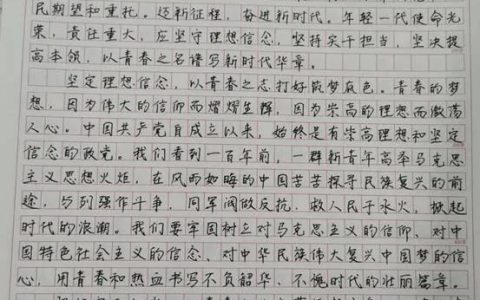 民期望和重托。迈新征程，奋进新时代。年轻一代使命光
荣，责任重大，应坚守理想信念，坚持实干担当，坚决提
高本领，以青春之名谱写新时代华章。
坚定理想信念，以青春之志打好筑梦底色。青春的梦
想，因为伟大的信仰而熠熠生辉，因为崇高的理想而激荡
人心。中国共产党自成立以来，始终是有崇高理想和坚定
信念的政党。我们看到一百年前，一群新青年高举马克思
主义思想火炬，在风雨如晦的中国苦苦探寻民族复兴的前
途，与列强作斗争，同军阀做反抗，救人民于水火，掀起
时代的浪潮。我们要牢固树立对马克思主义的信仰，对中
国特色社会主义的信念，对中华民族伟大复兴中国梦的信
心，用青春和热血书写不负韶华、不愧时代的壮丽篇章。